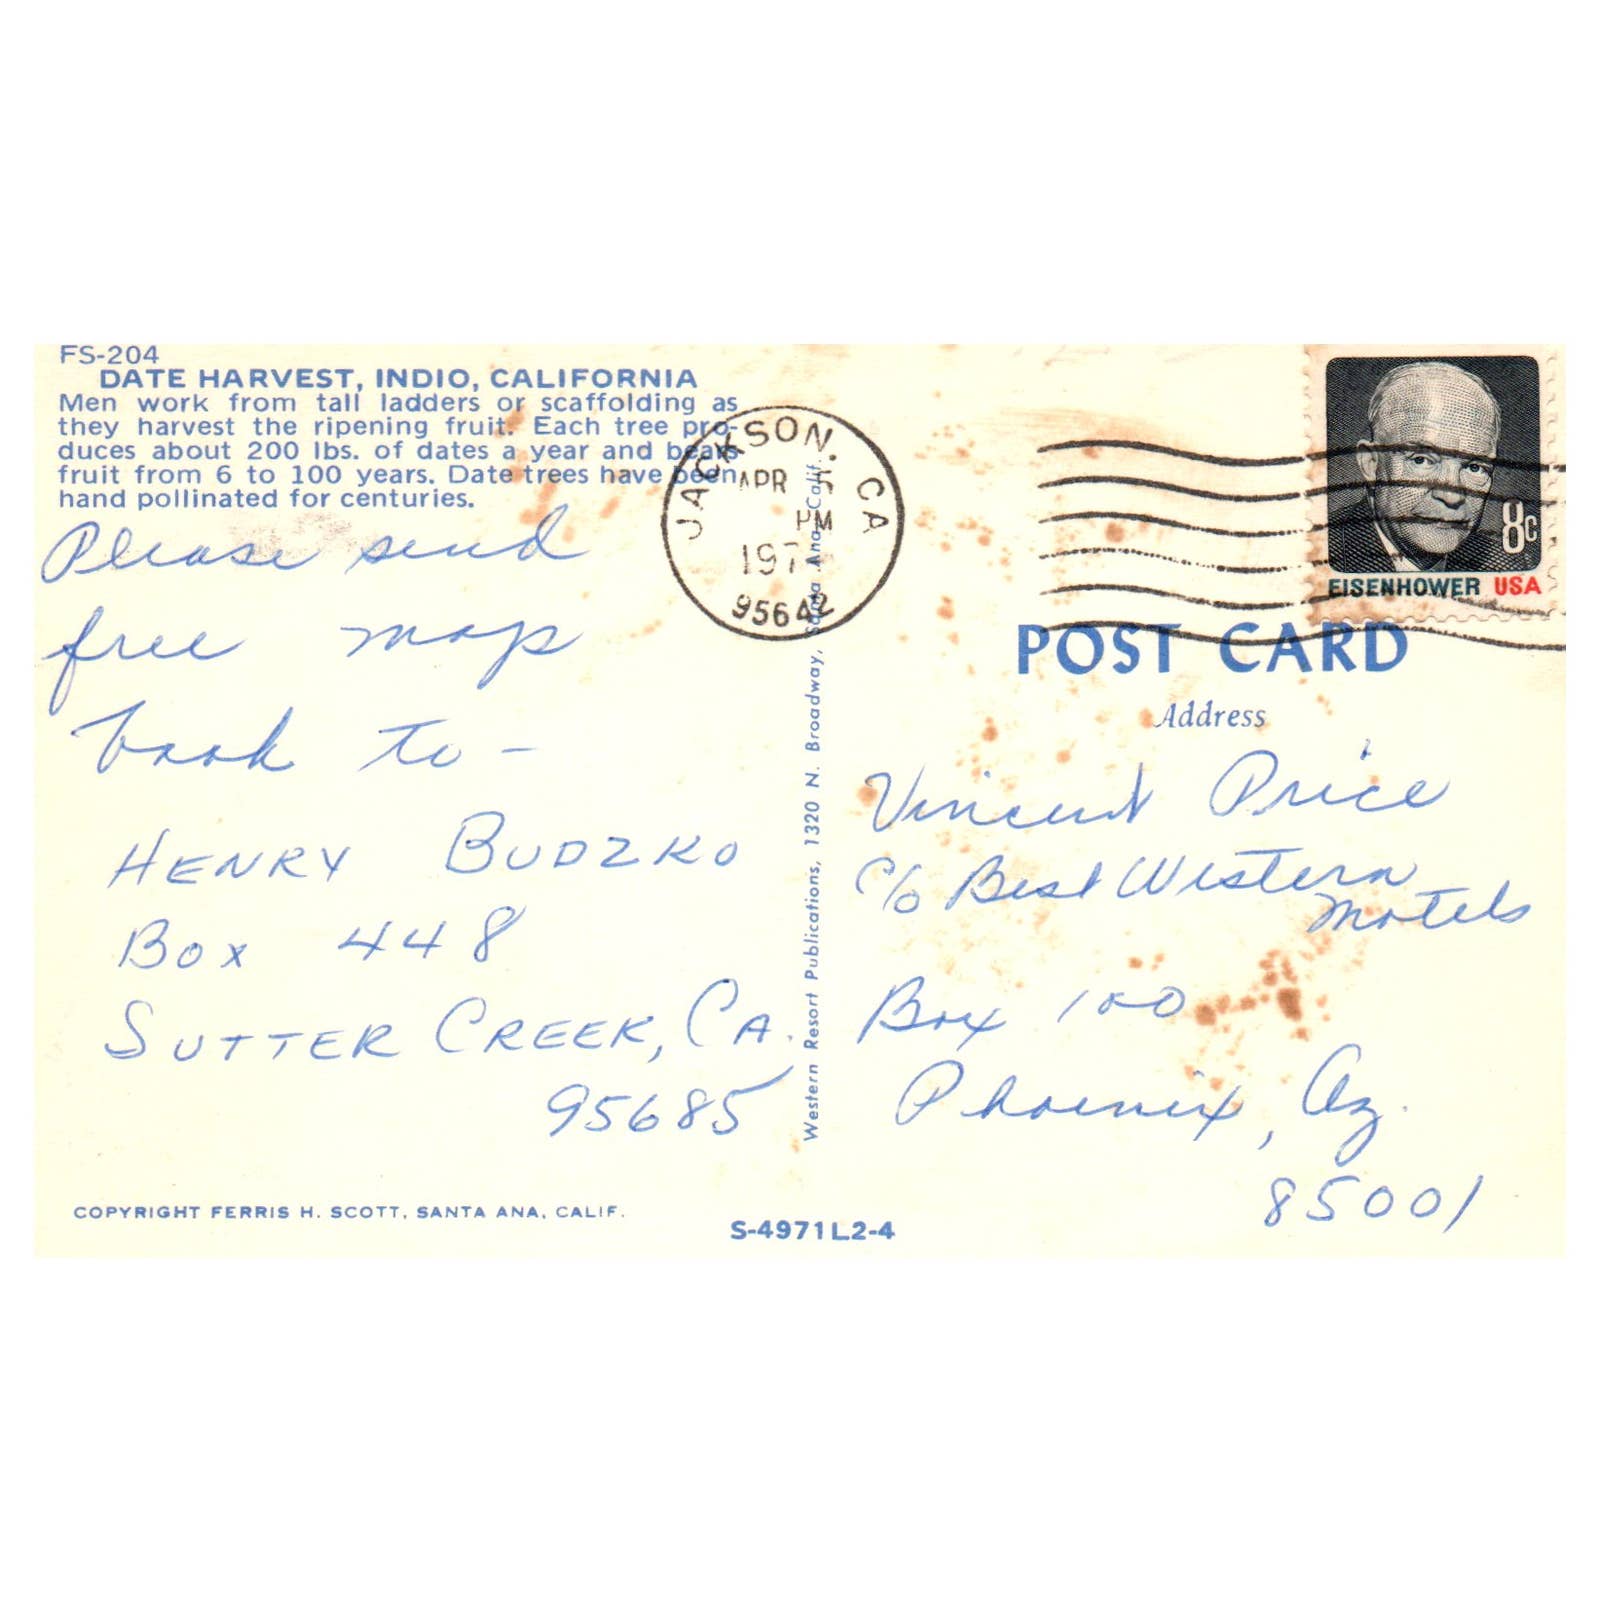 FS-204
DATE HARVEST, INDIO, CALIFORNIA
Men work from tall ladders or scaffolding as
they harvest the ripening fruit. Each tree pro-
duces about 200 lbs. of dates a year and bears
fruit from 6 to 100 years. Date trees have been
hand pollinated for centuries.
Please send
free map
book to -
HENRY BUDZKO
BOX 448
SUTTER CREEK, CA.
95685
COPYRIGHT FERRIS H. SCOTT, SANTA ANA, CALIF.
S-4971L2-4
Western Resort Publications, 1320 N. Broadway, Santa Ana, Calif.
JACKSON, CA
APR 5
PM
197
95642
8c
EISENHOWER USA
POST CARD
Address
Vincent Price
c/o Best Western
Motels
Box 100
Phoenix, Az.
85001